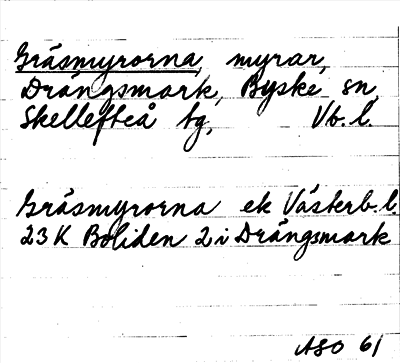 Gräsmyrorna, myrar,
Drängsmark, Byske sn,
Skellefteå tg, Vb. l.
Gräsmyrorna ek Västerb. l.
23 K Boliden 2 i Drängsmark
ASO 61